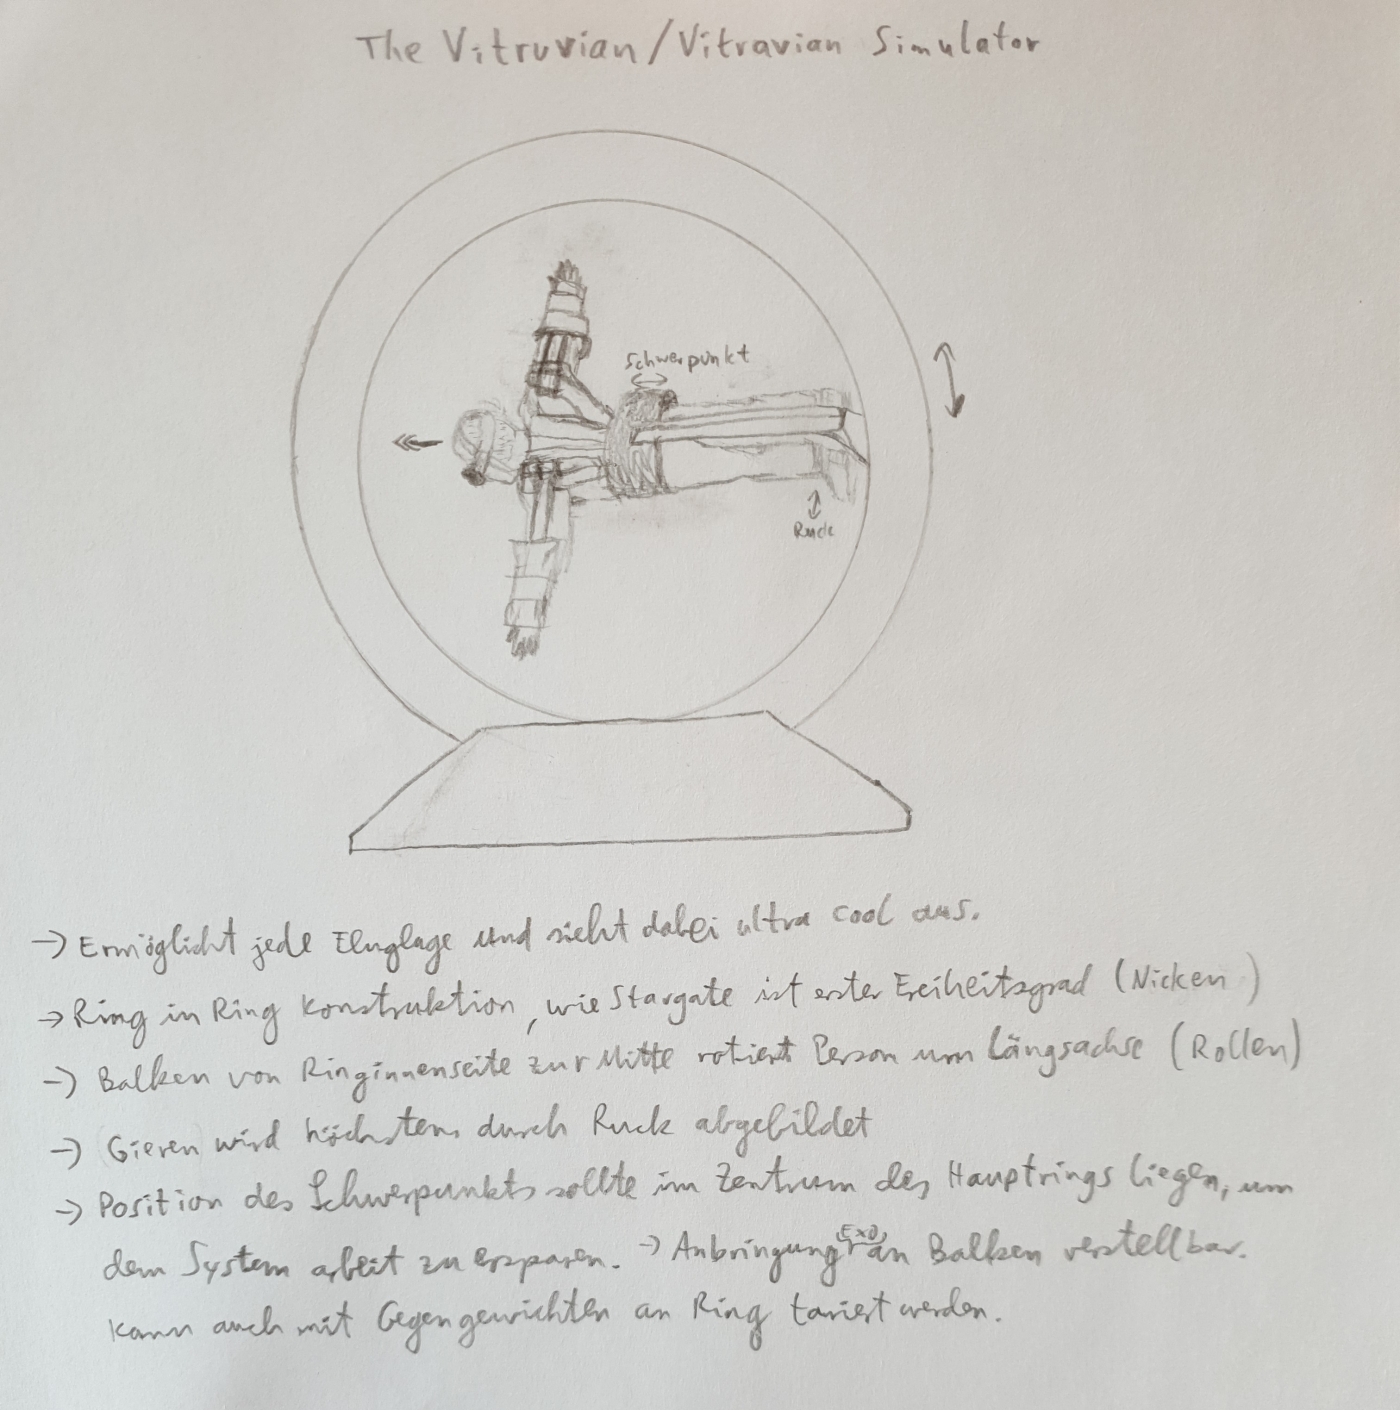 The Vitruvian/Vitravian Simulator
Schwerpunkt
Ruck
-> Ermöglicht jede Fluglage und sieht dabei ultra cool aus.
-> Ring in Ring Konstruktion, wie Stargate ist erster Freiheitsgrad (Nicken)
-> Balken von Ringinnenseite zur Mitte rotiert Person um Längsachse (Rollen)
-> Gieren wird höchstens durch Ruck abgebildet
-> Position des Schwerpunkts sollte im Zentrum des Hauptrings liegen, um
dem System arbeit zu ersparen. -> Anbringung Exo an Balken verstellbar.
Kann auch mit Gegengewichten an Ring tariert werden.